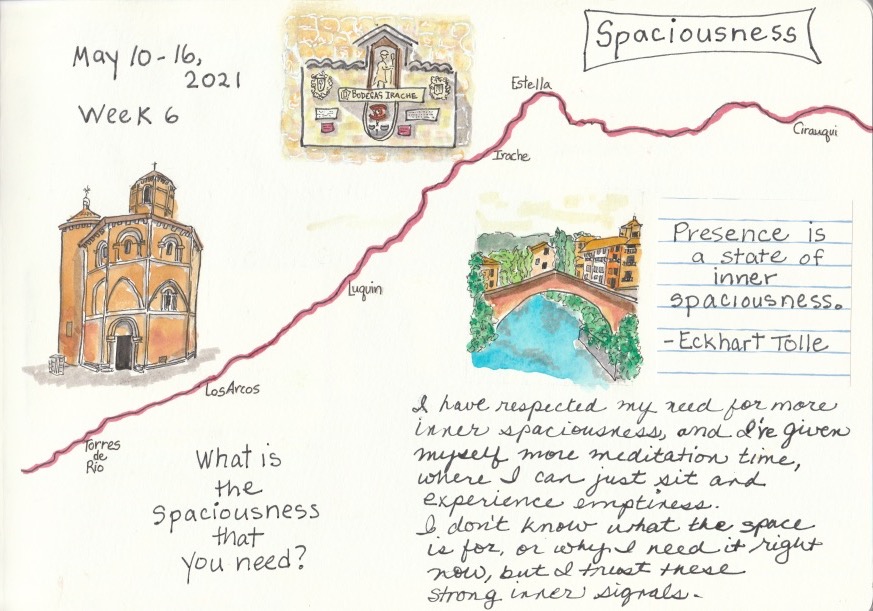 May 10-16,
2021
Week 6
Spaciousness
BODEGAS IRACHE
Estella
Cirauqui
Irache
Luquin
Los Arcos
Torres
de
Rio
Presence is
a state of
inner
spaciousness.
-Eckhart Tolle
What is
the
Spaciousness
that
You need?
I have respected my need for more
inner spaciousness, and I've given
myself more meditation time,
where I can just sit and
experience emptiness.
I don't know what the space
is for, or why I need it right
now, but I trust these
strong inner signals.